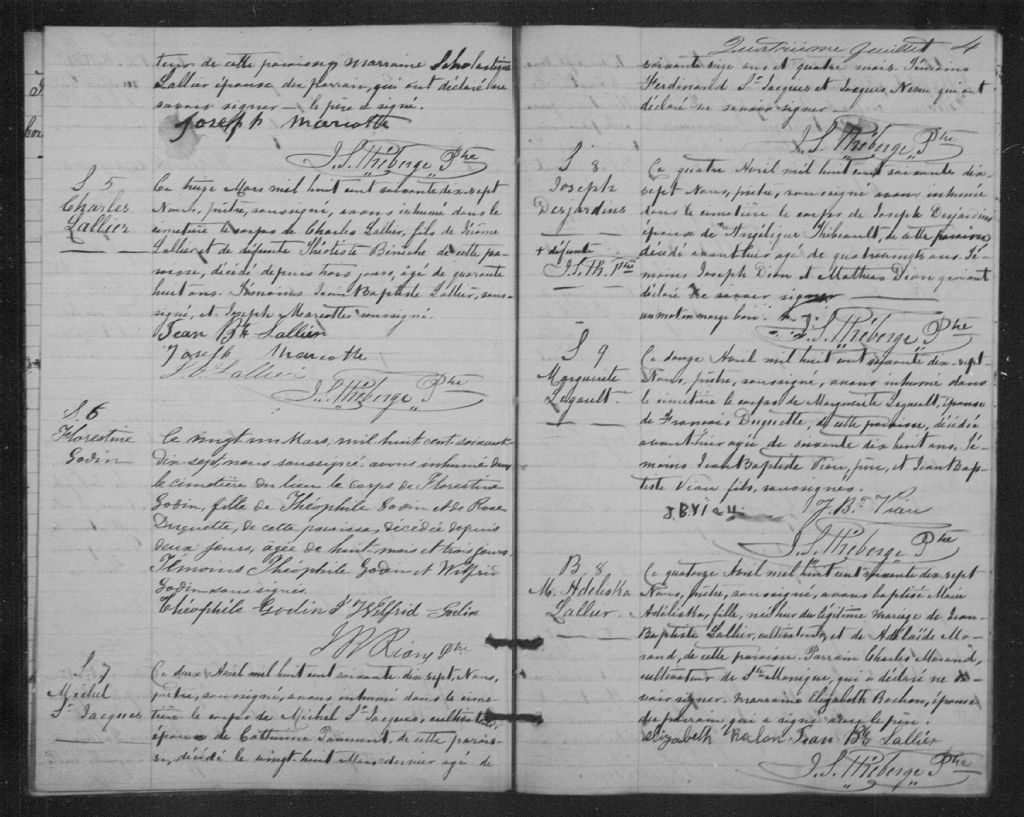 teur de cette paroisse, marraine Scholastique
Lallier épouse du parrain, qui ont déclaré ne
savoir signer — le père a signé.
Joseph Mariotte
J. S. Théberge Ptre
S 5
Charles
Lallier
Ce treize Mars mil huit cent soixante dix sept
Nous, prêtre, soussigné, avons inhumé dans le
cimetière le corps de Charles Lallier, fils de Jérôme
Lallier et de défunte Théotiste Béniche de cette pa-
roisse, décédé depuis trois jours, âgé de quarante
huit ans. Témoins Jean Baptiste Lallier, sous-
signé, et Joseph Mariotte soussigné.
Jean Bte Lallier
Joseph Mariotte
Lallier
J. S. Théberge Ptre
S. 6
Florestine
Godin
Le vingt un Mars, mil huit cent soixante
dix sept, nous soussigné, avons inhumé dans
le cimetière du lieu le corps de Florestine
Godin, fille de Théophile Godin et de Rose
Duquette, de cette paroisse, décédée depuis
deux jours, âgée de huit mois et trois jours.
Témoins Théophile Godin et Wilfrid
Godin soussignés
Théophile Godin Wilfrid Godin
Ptre
S. 7
Michel
St Jacques
Ce deux Avril mil huit cent soixante dix sept, Nous,
prêtre, soussigné, avons inhumé dans le cime-
tière le corps de Michel St Jacques, cultivateur,
époux de Catherine de cette parois-
se, décédé le vingt-huit Mars dernier agé de
Quatrième feuillet 4
soixante ans et quatre mois. Témoins
Ferdinand St Jacques et Jacques qui ont
déclaré ne savoir signer —
J. S. Théberge Ptre
S 8
Joseph
Desjardins
+ défunte
J. S. Th. Ptre
Ce quatre Avril mil huit cent soixante dix
sept Nous, prêtre, soussigné avons inhumé
dans le cimetière le corps de Joseph Desjardins
époux de + Angélique Thibeault, de cette paroisse
décédé avant hier agé de quatrevingts ans. Té-
moins Joseph Dion et Mathias Dion qui ont
déclaré ne savoir signer
un mot en marge bon.
J. S. Théberge Ptre
S 9
Marguerite
Legault
Ce douze Avril mil huit cent soixante dix-sept
Nous, prêtre, soussigné, avons inhumé dans
le cimetière le corps de Marguerite Legault, épouse
de François Duquette, de cette paroisse, décédée
avant hier agée de soixante dix huit ans. Té-
moins Jean Baptiste Viau, père, et Jean Bap-
tiste Viau fils, soussignés.
J. B. Viau J. Bte Viau
J. S. Théberge Ptre
B. 8
M. Adéliska
Lallier
Ce quatorze Avril mil huit cent soixante dix sept
Nous, prêtre, soussigné, avons baptisé Marie
Adéliska, fille, née hier du légitime mariage de Jean
Baptiste Lallier, cultivateur, et de Adélaïde Mo-
rand, de cette paroisse. Parrain Charles Morand,
cultivateur de Ste Monique, qui a déclaré ne sa-
voir signer. Marraine Elizabeth Rochon, épouse
du parrain qui a signé avec le père.
elizabeth Rolon Jean Bte Lallier
J. S. Théberge Ptre